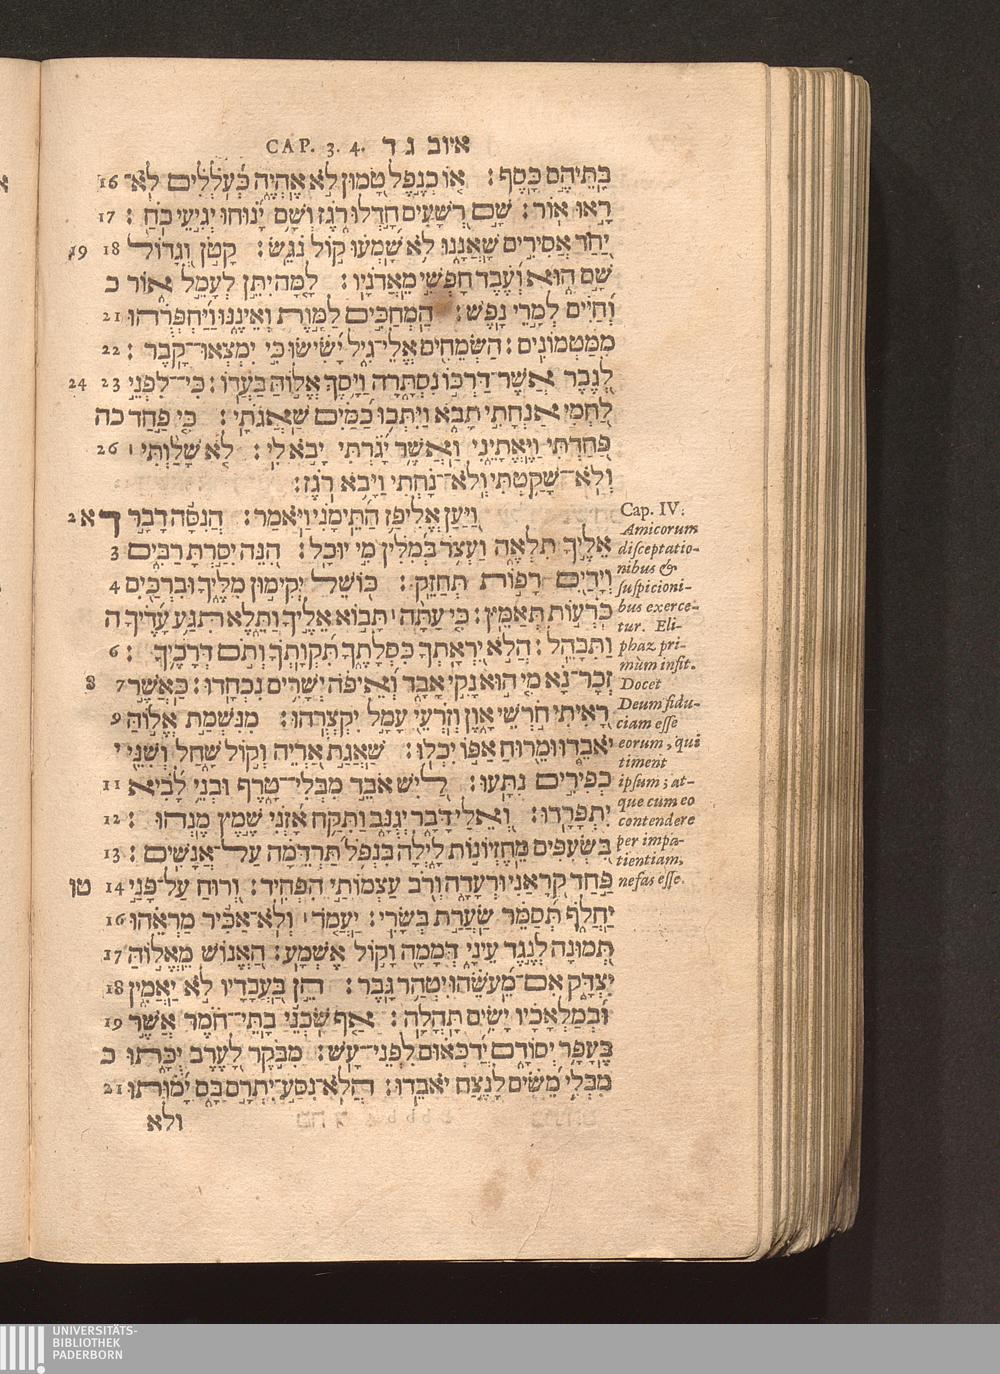 CAP. 3. 4. איוב ג ד
בָּתֵּיהֶם כָּסֶף׃ אוֹ כְנֵפֶל טָמוּן לֹא אֶהְיֶה כְּעֹלְלִים לֹא־ 16
רָאוּ אוֹר׃ שָׁם רְשָׁעִים חָדְלוּ רֹגֶז וְשָׁם יָנוּחוּ יְגִיעֵי כֹחַ׃ 17
יַחַד אֲסִירִים שַׁאֲנָנוּ לֹא שָׁמְעוּ קוֹל נֹגֵשׂ׃ קָטֹן וְגָדוֹל 18 19
שָׁם הוּא וְעֶבֶד חָפְשִׁי מֵאֲדֹנָיו׃ לָמָּה יִתֵּן לְעָמֵל אוֹר כ
וְחַיִּים לְמָרֵי נָפֶשׁ׃ הַמְחַכִּים לַמָּוֶת וְאֵינֶנּוּ וַיַּחְפְּרֻהוּ 21
מִמַּטְמוֹנִים׃ הַשְּׂמֵחִים אֱלֵי־גִיל יָשִׂישׂוּ כִּי יִמְצְאוּ־קָבֶר׃ 22
לְגֶבֶר אֲשֶׁר־דַּרְכּוֹ נִסְתָּרָה וַיָּסֶךְ אֱלוֹהַּ בַּעֲדוֹ׃ כִּי־לִפְנֵי 23 24
לַחְמִי אַנְחָתִי תָבֹא וַיִּתְּכוּ כַמַּיִם שַׁאֲגֹתָי׃ כִּי פַחַד כה
פָּחַדְתִּי וַיֶּאֱתָיֵנִי וַאֲשֶׁר יָגֹרְתִּי יָבֹא לִי׃ לֹא שָׁלַוְתִּי׀ 26
וְלֹא־שָׁקַטְתִּי וְלֹא־נָחְתִּי וַיָּבֹא רֹגֶז׃
וַיַּעַן אֱלִיפַז הַתֵּימָנִי וַיֹּאמַר׃ הֲנִסָּה דָבָר ד א 2
אֵלֶיךָ תִּלְאֶה וַעְצֹר בְּמִלִּין מִי יוּכָל׃ הִנֵּה יִסַּרְתָּ רַבִּים 3
וְיָדַיִם רָפוֹת תְּחַזֵּק׃ כּוֹשֵׁל יְקִימוּן מִלֶּיךָ וּבִרְכַּיִם 4
כֹּרְעוֹת תְּאַמֵּץ׃ כִּי עַתָּה׀ תָּבוֹא אֵלֶיךָ וַתֵּלֶא תִּגַּע עָדֶיךָ ה
וַתִּבָּהֵל׃ הֲלֹא יִרְאָתְךָ כִּסְלָתֶךָ תִּקְוָתְךָ וְתֹם דְּרָכֶיךָ׃ 6
זְכָר־נָא מִי הוּא נָקִי אָבָד וְאֵיפֹה יְשָׁרִים נִכְחָדוּ׃ כַּאֲשֶׁר 7 8
רָאִיתִי חֹרְשֵׁי אָוֶן וְזֹרְעֵי עָמָל יִקְצְרֻהוּ׃ מִנִּשְׁמַת אֱלוֹהַּ 9
יֹאבֵדוּ וּמֵרוּחַ אַפּוֹ יִכְלוּ׃ שַׁאֲגַת אַרְיֵה וְקוֹל שָׁחַל וְשִׁנֵּי י
כְפִירִים נִתָּעוּ׃ לַיִשׁ אֹבֵד מִבְּלִי־טָרֶף וּבְנֵי לָבִיא 11
יִתְפָּרָדוּ׃ וְאֵלַי דָּבָר יְגֻנָּב וַתִּקַּח אָזְנִי שֵׁמֶץ מֶנְהוּ׃ 12
בִּשְׂעִפִּים מֵחֶזְיוֹנוֹת לָיְלָה בִּנְפֹל תַּרְדֵּמָה עַל־אֲנָשִׁים׃ 13
פַּחַד קְרָאַנִי וּרְעָדָה וְרֹב עַצְמוֹתַי הִפְחִיד׃ וְרוּחַ עַל־פָּנַי 14 טו
יַחֲלֹף תְּסַמֵּר שַׂעֲרַת בְּשָׂרִי׃ יַעֲמֹד׀ וְלֹא־אַכִּיר מַרְאֵהוּ 16
תְּמוּנָה לְנֶגֶד עֵינָי דְּמָמָה וָקוֹל אֶשְׁמָע׃ הַאֱנוֹשׁ מֵאֱלוֹהַּ 17
יִצְדָּק אִם־מֵעֹשֵׂהוּ יִטְהַר גָּבֶר׃ הֵן בַּעֲבָדָיו לֹא יַאֲמִין 18
וּבְמַלְאָכָיו יָשִׂים תָּהֳלָה׃ אַף שֹׁכְנֵי בָתֵּי־חֹמֶר אֲשֶׁר 19
בֶּעָפָר יְסוֹדָם יְדַכְּאוּם לִפְנֵי־עָשׁ׃ מִבֹּקֶר לָעֶרֶב יֻכַּתּוּ כ
מִבְּלִי מֵשִׂים לָנֶצַח יֹאבֵדוּ׃ הֲלֹא־נִסַּע יִתְרָם בָּם יָמוּתוּ 21
ולא
Cap. IV.
Amicorum
disceptatio-
nibus &
suspicioni-
bus exerce-
tur. Eli-
phaz pri-
mùm insit.
Docet
Deum fidu-
ciam esse
eorum, qui
timent
ipsum; at-
que cum eo
contendere
per impa-
tientiam,
nefas esse.
UNIVERSITÄTS-
BIBLIOTHEK
PADERBORN